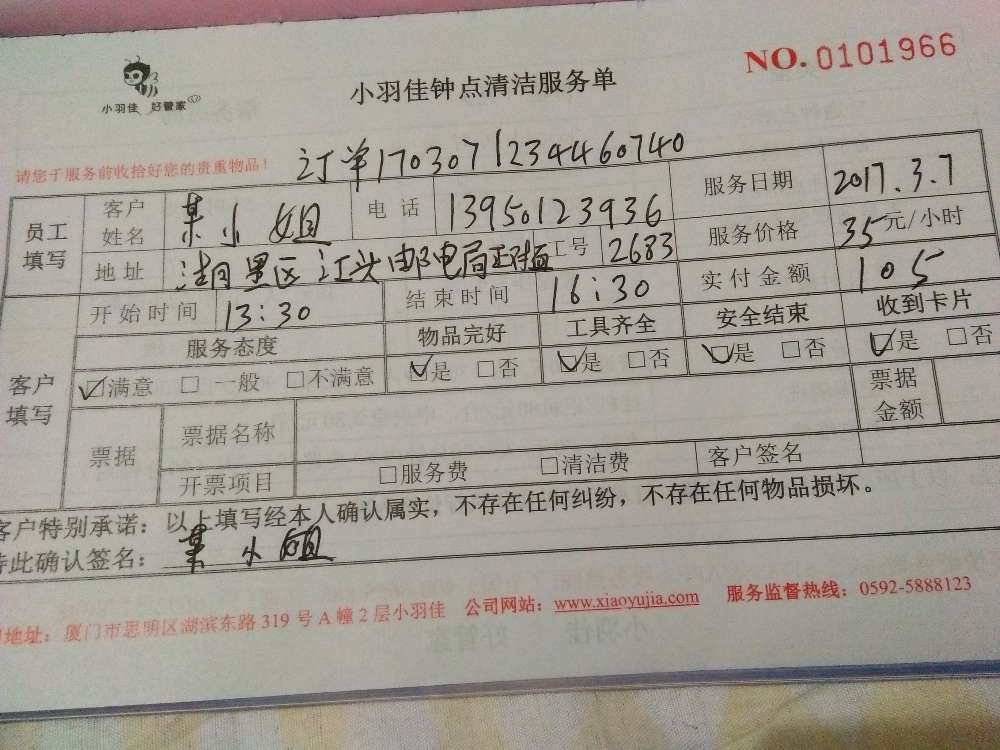 小羽佳 好管家
小羽佳钟点清洁服务单
NO.0101966
请您于服务前收拾好您的贵重物品！
订单170307123446074​0
员工填写 客户姓名 某小姐 电话 13950123936 服务日期 2017.3.7
地址 湖里区江头邮电局正对面 工号 2683 服务价格 35元/小时
开始时间 13:30 结束时间 16:30 实付金额 105
客户填写 服务态度 物品完好 工具齐全 安全结束 收到卡片
☑满意 □一般 □不满意 ☑是 □否 ☑是 □否 ☑是 □否 ☑是 □否
票据 票据名称 票据金额
开票项目 □服务费 □清洁费 客户签名
客户特别承诺：以上填写经本人确认属实，不存在任何纠纷，不存在任何物品损坏。
特此确认签名：某小姐
地址：厦门市思明区湖滨东路319号A幢2层小羽佳 公司网站：www.xiaoyujia.com 服务监督热线：0592-5888123